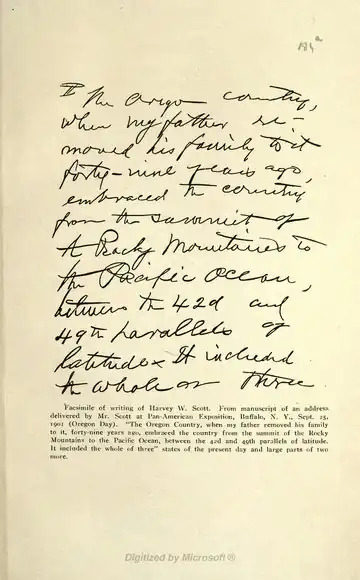 The Oregon country,
when my father re-
moved his family to it
forty-nine years ago,
embraced the country
from the summit of
the Rocky Mountains to
the Pacific Ocean,
between the 42d and
49th parallels of
latitude. It included
the whole of three
Facsimile of writing of Harvey W. Scott. From manuscript of an address
delivered by Mr. Scott at Pan-American Exposition, Buffalo, N. Y., Sept. 25,
1901 (Oregon Day). "The Oregon Country, when my father removed his family
to it, forty-nine years ago, embraced the country from the summit of the Rocky
Mountains to the Pacific Ocean, between the 42d and 49th parallels of latitude.
It included the whole of three" states of the present day and large parts of two
more.
Digitized by Microsoft®